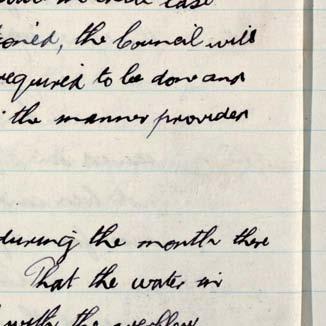 in case
ioned, the Council will
required to be done and
the manner provided
during the month there
That the water in
with the overflow